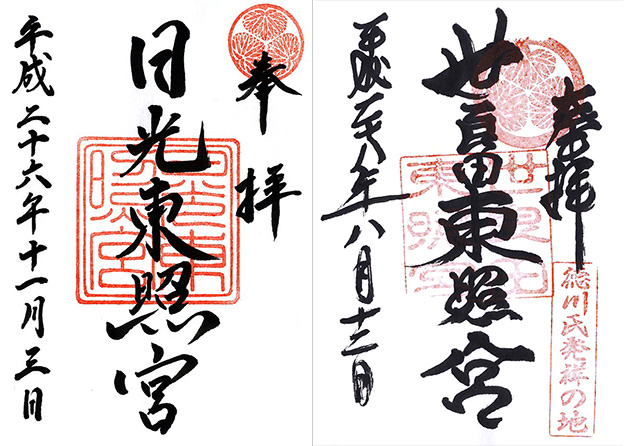 奉拝
日光東照宮
平成二十六年十一月三日
奉拝
徳川氏発祥の地
世良田東照宮
世良田東照宮
平成二十八年八月十三日